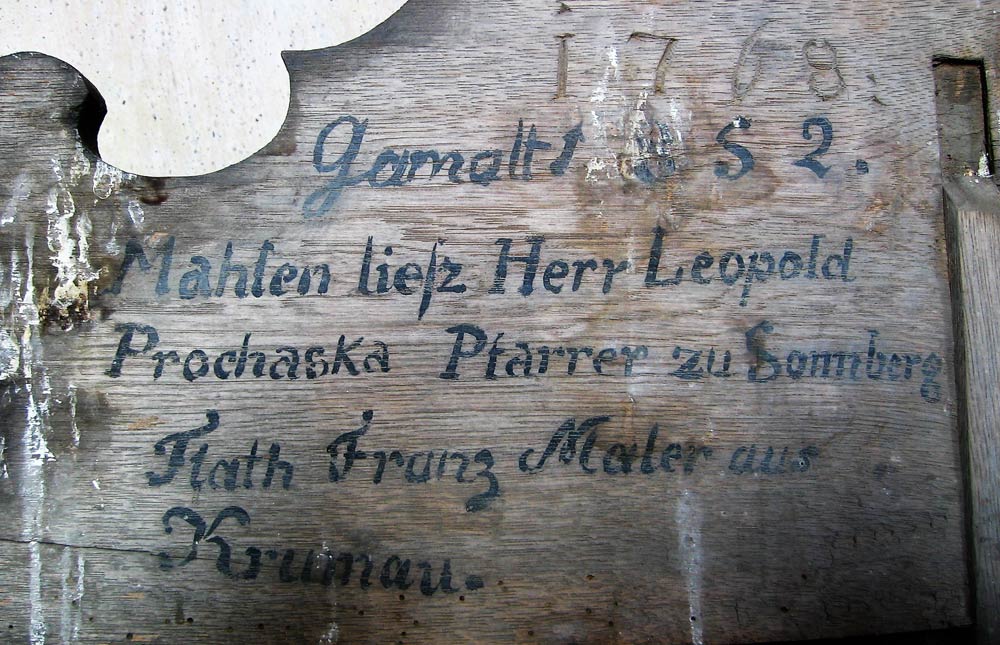 1768.
Gamalt 1852.
Mahlen lieſz Herr Leopold
Prochaska Pfarrer zu Sonnberg
Flath Franz Maler aus
Krumau.